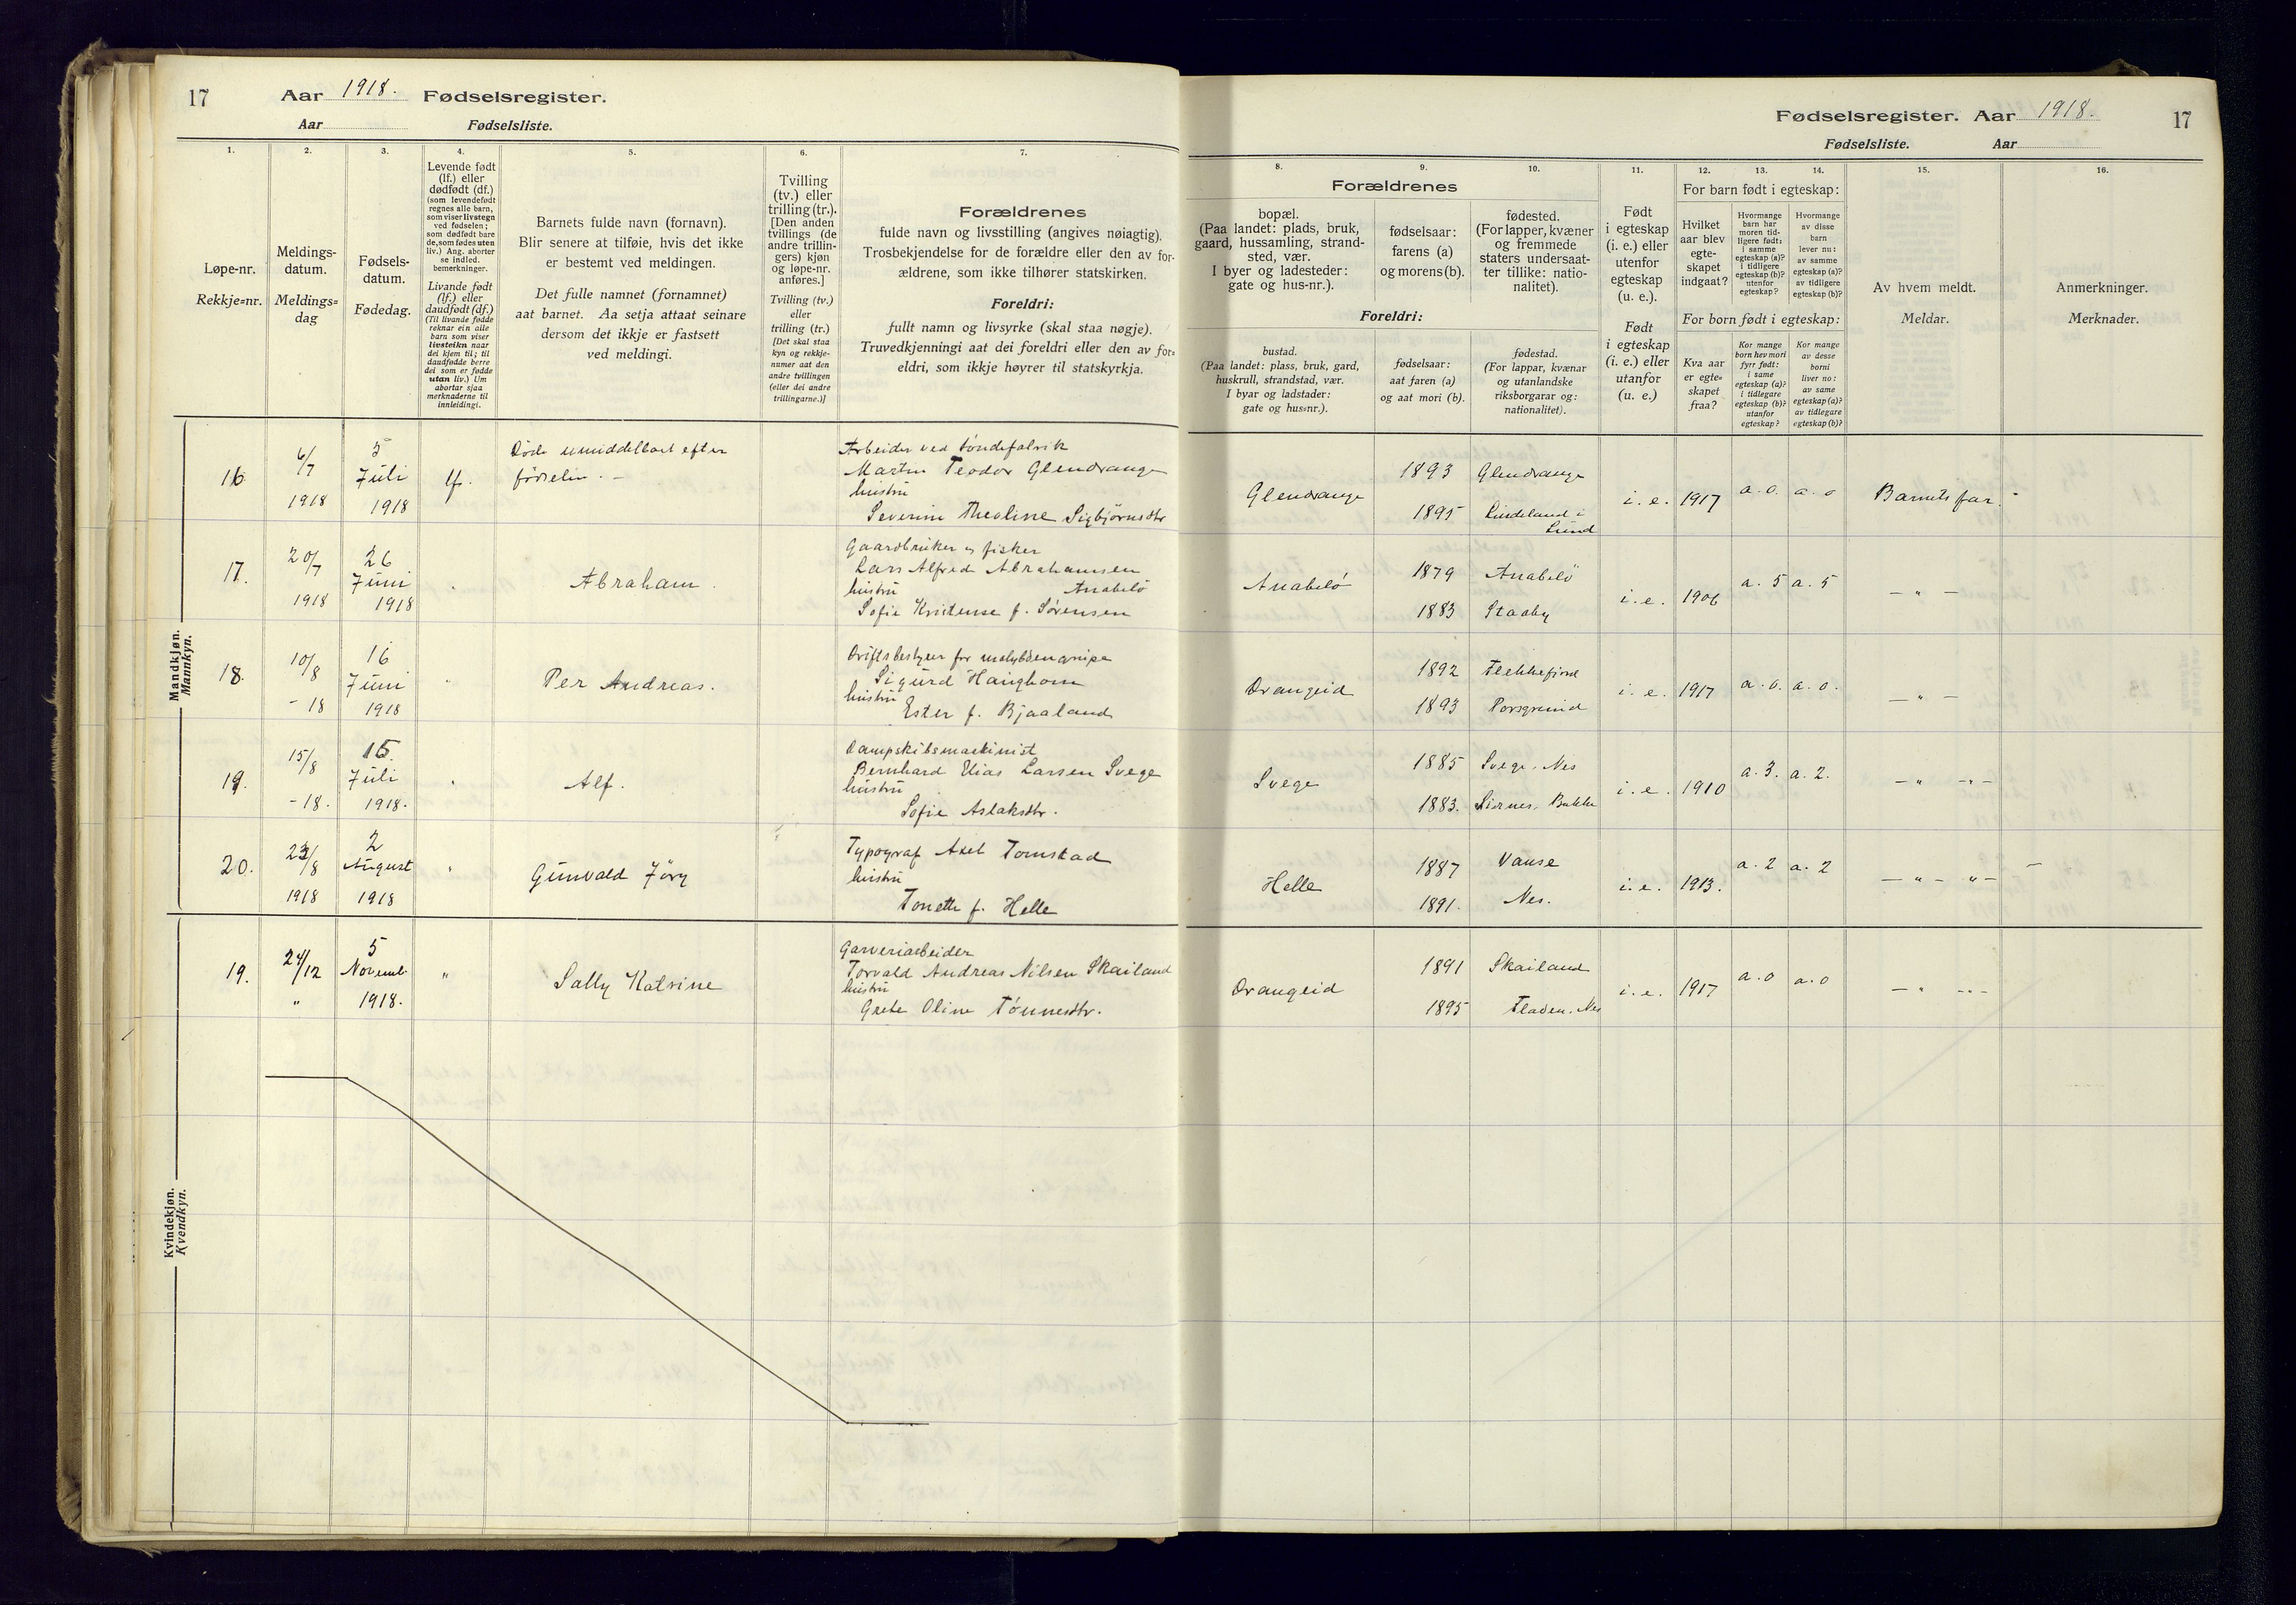 17
Aar 1918. Fødselsregister.
Aar Fødselsliste.
1.
2.
3.
4.
5.
6.
7.
Løpe-nr.
Rekkje=nr.
Meldings-
datum.
Meldings=
dag
Fødsels-
datum.
Fødedag.
Levende født
(lf.) eller
dødfødt (df.)
(som levendefødt
regnes alle barn,
som viser livstegn
ved fødselen;
som dødfødt bare
de, som fødes uten
liv.) Ang. aborter
se indled.
bemerkninger.
Livande født
(lf.) eller
daudfødt (df.)
(Til livande fødde
reknar ein alle
barn som viser
livsteikn naar
dei kjem til; til
daudfødde berre
dei som er fødde
utan liv.) Um
abortar sjaa
merknaderne til
innleidingi.
Barnets fulde navn (fornavn).
Blir senere at tilføie, hvis det ikke
er bestemt ved meldingen.
Det fulle namnet (fornamnet)
aat barnet. Aa setja attaat seinare
dersom det ikkje er fastsett
ved meldingi.
Tvilling
(tv.) eller
trilling (tr.).
[Den anden
tvillings (de
andre trillin-
gers) kjøn
og løpe-nr.
anføres.]
Tvilling (tv.)
eller
trilling (tr.)
[Det skal staa
kyn og rekkje-
numer aat den
andre tvillingen
(eller dei andre
trillingarne.)]
Forældrenes
fulde navn og livsstilling (angives nøiagtig).
Trosbekjendelse for de forældre eller den av for-
ældrene, som ikke tilhører statskirken.
Foreldri:
fullt namn og livsyrke (skal staa nøgje).
Truvedkjenningi aat dei foreldri eller den av for=
eldri, som ikkje høyrer til statskyrkja.
Mandkjøn.
Mannkyn.
16
6/7
1918
5
Juli
1918
lf.
Døde umiddelbart efter
fødselen. —
Arbeider ved tøndefabrik
Martin Teodor Glendrange
hustru
Severine Thealine Sigbjørnsdtr
17.
20/7
1918
26
Juni
1918
"
Abraham.
Gaardbruker og fisker
Lars Alfred Abrahamsen
hustru Anabelø
Sofie Kristense f. Sørensen
18.
10/8
- 18
16
Juni
1918
"
Per Andreas.
Driftsbestyrer for molybdængrube
Sigurd Haughom
hustru
Ester f. Bjaaland
19.
15/8
- 18.
15.
Juli
1918.
"
Alf.
Dampskibsmaskinist
Bernhard Elias Larsen Svege
hustru
Sofie Aslaksdtr.
20.
/8
1918
2
August
1918
"
Gunvald Jörg
Typograf Axel Tomstad
hustru
Tonette f. Helle
Kvindekjøn.
Kvendkyn.
19.
24/12
"
5
Novemb.
1918.
"
Sally Katrine
Garveriarbeider
Torvald Andreas Nilsen Skailand
hustru
Grete Oline Tønnesdtr.
Fødselsregister. Aar 1918.
17
Fødselsliste. Aar
8.
9.
10.
11.
12.
13.
14.
15.
16.
Forældrenes
bopæl.
(Paa landet: plads, bruk,
gaard, hussamling, strand-
sted, vær.
I byer og ladesteder:
gate og hus-nr.).
fødselsaar:
farens (a)
og morens (b).
fødested.
(For lapper, kvæner
og fremmede
staters undersaat-
ter tillike: natio-
nalitet).
Foreldri:
bustad.
(Paa landet: plass, bruk, gard,
huskrull, strandstad, vær.
I byar og ladstader:
gate og hus=nr.).
fødselsaar:
aat faren (a)
og aat mori (b).
fødestad.
(For lappar, kvænar
og utanlandske
riksborgarar og:
nationalitet).
Født
i egteskap
(i. e.) eller
utenfor
egteskap
(u. e.).
Født
i egteskap
(i. e.) eller
utanfor
(u. e.)
For barn født i egteskap:
Hvilket
aar blev
egte-
skapet
indgaat?
Hvormange
barn har
moren tid-
ligere født:
i samme
egteskap (a)?
i tidligere
egteskap (b)?
utenfor
egteskap?
Hvormange
av disse
barn
lever nu:
av samme
egteskap (a)?
av tidligere
egteskap (b)?
For born født i egteskap:
Kva aar
er egte=
skapet
fraa?
Kor mange
born hev mori
fyrr født:
i same
egteskap (a)?
i tidlegare
egteskap (b)?
utanfor
egteskap?
Kor mange
av desse
borni
liver no:
av same
egteskap (a)?
av tidlegare
egteskap (b)?
Av hvem meldt.
Meldar.
Anmerkninger.
Merknader.
Glendrange
1893
1895
Glendrange
Lindeland i
Lund
i. e.
1917
a. o.
a. o
Barnets far.
Anabelø
1879
1883
Anabelø
Staaby
i. e.
1906
a. 5
a. 5
— " —
Drangeid
1892
1893
Flekkefjord
Porsgrund
i. e.
1917
a. o.
a. o.
— " —
Svege
1885
1883.
Svege. Nes
Sirnes. Bakke
i. e.
1910
a. 3.
a. 2.
— " —
Helle
1887
1891.
Vanse
Nes.
i. e.
1913.
a. 2
a. 2
— " — " —
Drangeid
1891
1895
Skailand
Fladen. Nes
i. e.
1917
a. o
a. o
— " —